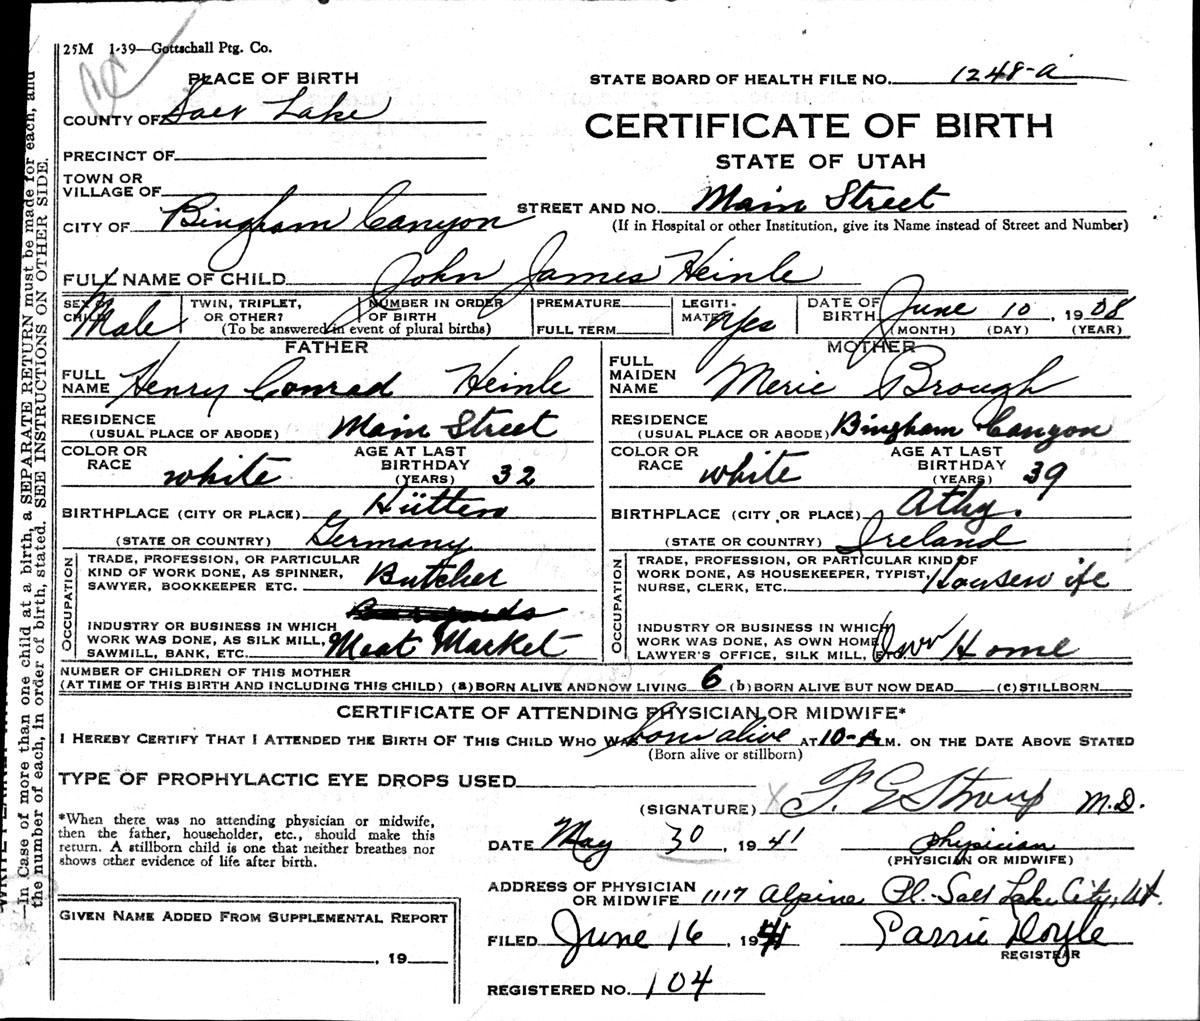 25M 1-39—Gottschall Ptg. Co.
PLACE OF BIRTH
STATE BOARD OF HEALTH FILE NO. 1248-a
COUNTY OF Salt Lake
CERTIFICATE OF BIRTH
STATE OF UTAH
PRECINCT OF
TOWN OR
VILLAGE OF
CITY OF Bingham Canyon
STREET AND NO. Main Street
(If in Hospital or other Institution, give its Name instead of Street and Number)
FULL NAME OF CHILD John James Heinle
SEX
CHILD Male
TWIN, TRIPLET,
OR OTHER?
NUMBER IN ORDER
OF BIRTH
(To be answered in event of plural births)
PREMATURE
FULL TERM
LEGITI-
MATE? Yes
DATE OF
BIRTH June 10, 1908
(MONTH) (DAY) (YEAR)
FATHER
FULL
NAME Henry Conrad Heinle
RESIDENCE
(USUAL PLACE OF ABODE) Main Street
COLOR OR
RACE white
AGE AT LAST
BIRTHDAY
(YEARS) 32
BIRTHPLACE (CITY OR PLACE) Hütten
(STATE OR COUNTRY) Germany
OCCUPATION
TRADE, PROFESSION, OR PARTICULAR
KIND OF WORK DONE, AS SPINNER,
SAWYER, BOOKKEEPER ETC. Butcher
INDUSTRY OR BUSINESS IN WHICH
WORK WAS DONE, AS SILK MILL,
SAWMILL, BANK, ETC. Meat Market
MOTHER
FULL
MAIDEN
NAME Merie Brough
RESIDENCE
(USUAL PLACE OF ABODE) Bingham Canyon
COLOR OR
RACE white
AGE AT LAST
BIRTHDAY
(YEARS) 39
BIRTHPLACE (CITY OR PLACE) Athy.
(STATE OR COUNTRY) Ireland
OCCUPATION
TRADE, PROFESSION, OR PARTICULAR KIND OF
WORK DONE, AS HOUSEKEEPER, TYPIST,
NURSE, CLERK, ETC. Housewife
INDUSTRY OR BUSINESS IN WHICH
WORK WAS DONE, AS OWN HOME,
LAWYER'S OFFICE, SILK MILL, ETC. Own Home
NUMBER OF CHILDREN OF THIS MOTHER
(AT TIME OF THIS BIRTH AND INCLUDING THIS CHILD) (a) BORN ALIVE AND NOW LIVING 6 (b) BORN ALIVE BUT NOW DEAD (c) STILLBORN
CERTIFICATE OF ATTENDING PHYSICIAN OR MIDWIFE*
I HEREBY CERTIFY THAT I ATTENDED THE BIRTH OF THIS CHILD WHO WAS born alive AT 10-A M. ON THE DATE ABOVE STATED
(Born alive or stillborn)
TYPE OF PROPHYLACTIC EYE DROPS USED
(SIGNATURE) M.D.
*When there was no attending physician or midwife,
then the father, householder, etc., should make this
return. A stillborn child is one that neither breathes nor
shows other evidence of life after birth.
DATE May 30, 1941 physician
(PHYSICIAN OR MIDWIFE)
ADDRESS OF PHYSICIAN
OR MIDWIFE 1117 Alpine Pl. Salt Lake City, Ut.
FILED June 16, 1941 Doyle
REGISTRAR
REGISTERED NO. 104
GIVEN NAME ADDED FROM SUPPLEMENTAL REPORT
, 19
—In Case of more than one child at a birth, a SEPARATE RETURN must be made for each, and
the number of each, in order of birth, stated. SEE INSTRUCTIONS ON OTHER SIDE.